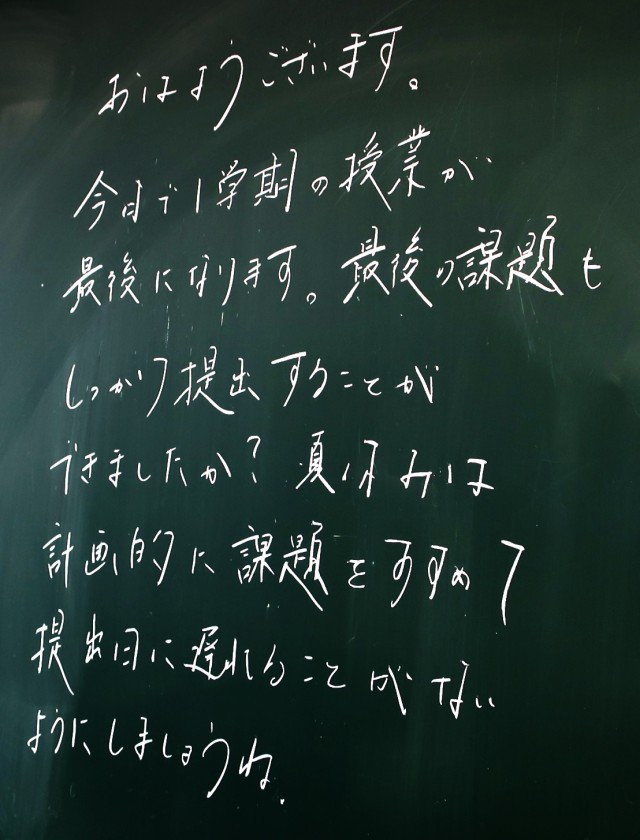 おはようございます。
今日で1学期の授業が
最後になります。最後の課題も
しっかり提出することが
できましたか？夏休みは
計画的に課題をすすめて
提出日に遅れることがない
ようにしましょうね.